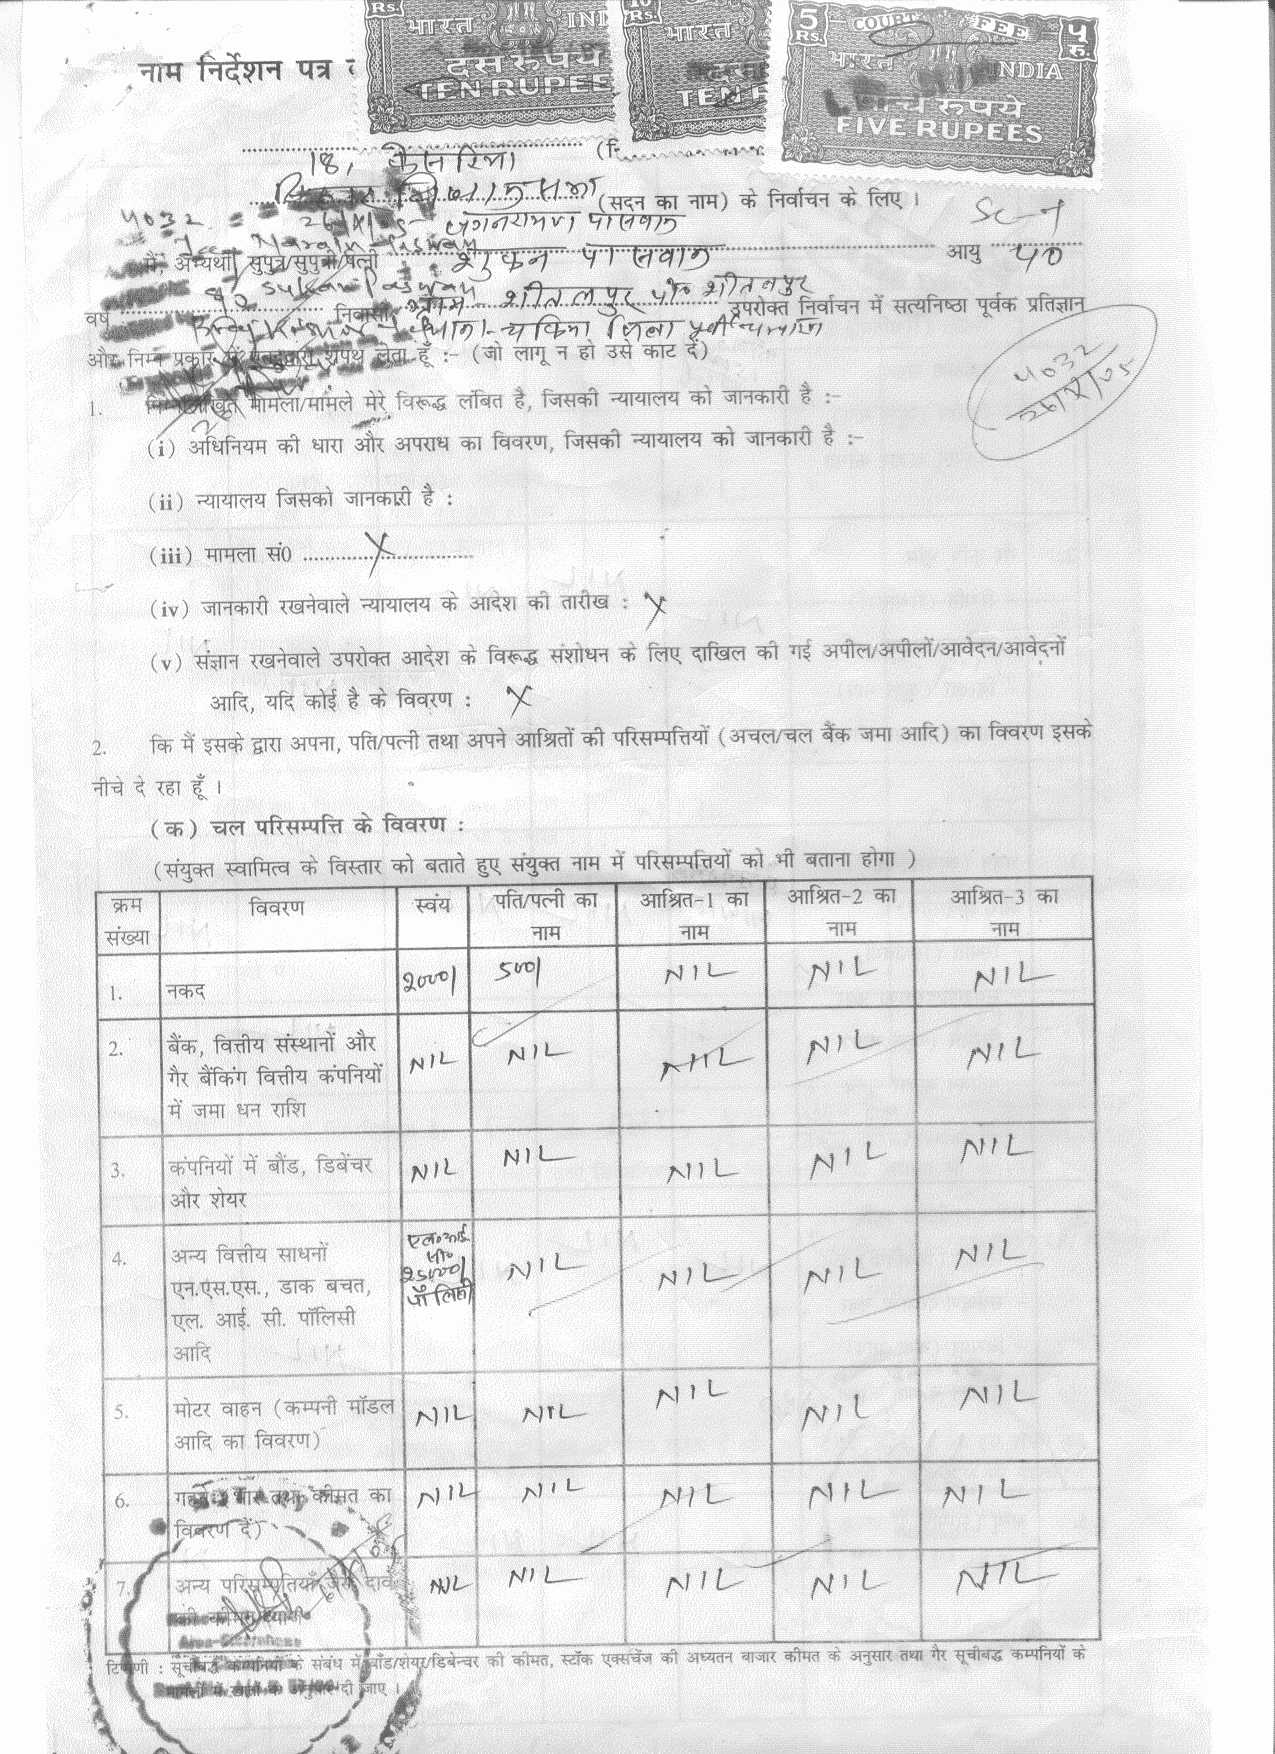 Rs. भारत INDIA दस रुपये TEN RUPEES
10 Rs. भारत TEN
5 Rs. COURT FEE ५ रु. भारत INDIA रुपये FIVE RUPEES
नाम निर्देशन पत्र
18,
(सदन का नाम) के निर्वाचन के लिए ।
4032
पासवान
मैं, अन्यथा सुपुत्र/सुपुत्री/पत्नी शुकन पासवान आयु 40
वर्ष निवासी ग्राम- शीतलपुर पो० शीतलपुर उपरोक्त निर्वाचन में सत्यनिष्ठा पूर्वक प्रतिज्ञान
थाना- जिला
और निम्न प्रकार शपथ लेता हूँ :- (जो लागू न हो उसे काट दें)
4032
1. मामला/मामले मेरे विरूद्ध लंबित है, जिसकी न्यायालय को जानकारी है :-
(i) अधिनियम की धारा और अपराध का विवरण, जिसकी न्यायालय को जानकारी है :-
(ii) न्यायालय जिसको जानकारी है :
(iii) मामला सं0 X
(iv) जानकारी रखनेवाले न्यायालय के आदेश की तारीख : X
(v) संज्ञान रखनेवाले उपरोक्त आदेश के विरूद्ध संशोधन के लिए दाखिल की गई अपील/अपीलों/आवेदन/आवेदनों
आदि, यदि कोई है के विवरण : X
2. कि मैं इसके द्वारा अपना, पति/पत्नी तथा अपने आश्रितों की परिसम्पत्तियों (अचल/चल बैंक जमा आदि) का विवरण इसके
नीचे दे रहा हूँ ।
(क) चल परिसम्पत्ति के विवरण :
(संयुक्त स्वामित्व के विस्तार को बताते हुए संयुक्त नाम में परिसम्पत्तियों को भी बताना होगा )
क्रम संख्या विवरण स्वंय पति/पत्नी का नाम आश्रित-1 का नाम आश्रित-2 का नाम आश्रित-3 का नाम
1. नकद 2000/ 500/ NIL NIL NIL
2. बैंक, वित्तीय संस्थानों और NIL NIL NIL NIL NIL
गैर बैंकिंग वित्तीय कंपनियों
में जमा धन राशि
3. कंपनियों में बौंड, डिबेंचर NIL NIL NIL NIL NIL
और शेयर
4. अन्य वित्तीय साधनों NIL NIL NIL NIL
एन.एस.एस., डाक बचत, 25000/
एल. आई. सी. पॉलिसी पॉलिसी
आदि
5. मोटर वाहन (कम्पनी मॉडल NIL NIL NIL NIL NIL
आदि का विवरण)
6. तथा कीमत का NIL NIL NIL NIL NIL
विवरण दें)
7. अन्य परिसम्पतियाँ NIL NIL NIL NIL NIL
टिप्पणी : सूचीबद्ध कम्पनियों के संबंध में बॉंड/शेयर/डिबेन्चर की कीमत, स्टॉक एक्सचेंज की अध्यतन बाजार कीमत के अनुसार तथा गैर सूचीबद्ध कम्पनियों के
मामलों में दी जाए ।